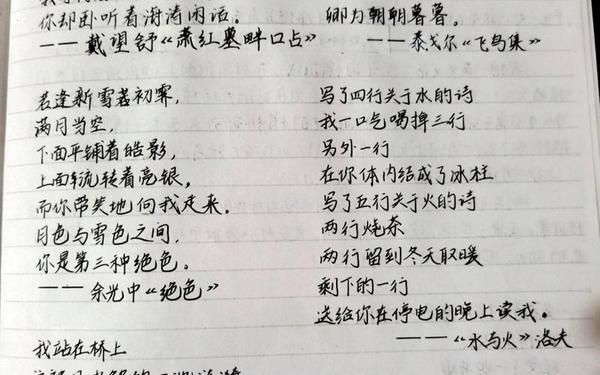 你却卧听着海涛闲话。
——戴望舒《萧红墓畔口占》
若逢新雪若初霁,
满月当空,
下面平铺着皓影,
上面流转着亮银,
而你带笑地向我走来,
月色与雪色之间,
你是第三种绝色。
——余光中《绝色》
我站在桥上
卿为朝朝暮暮。
——泰戈尔《飞鸟集》
写了四行关于水的诗
我一口气喝掉三行
另外一行
在你体内结成了冰柱
写了五行关于火的诗
两行烧茶
两行留到冬天取暖
剩下的一行
送给你在停电的晚上读我。
——《水与火》洛夫